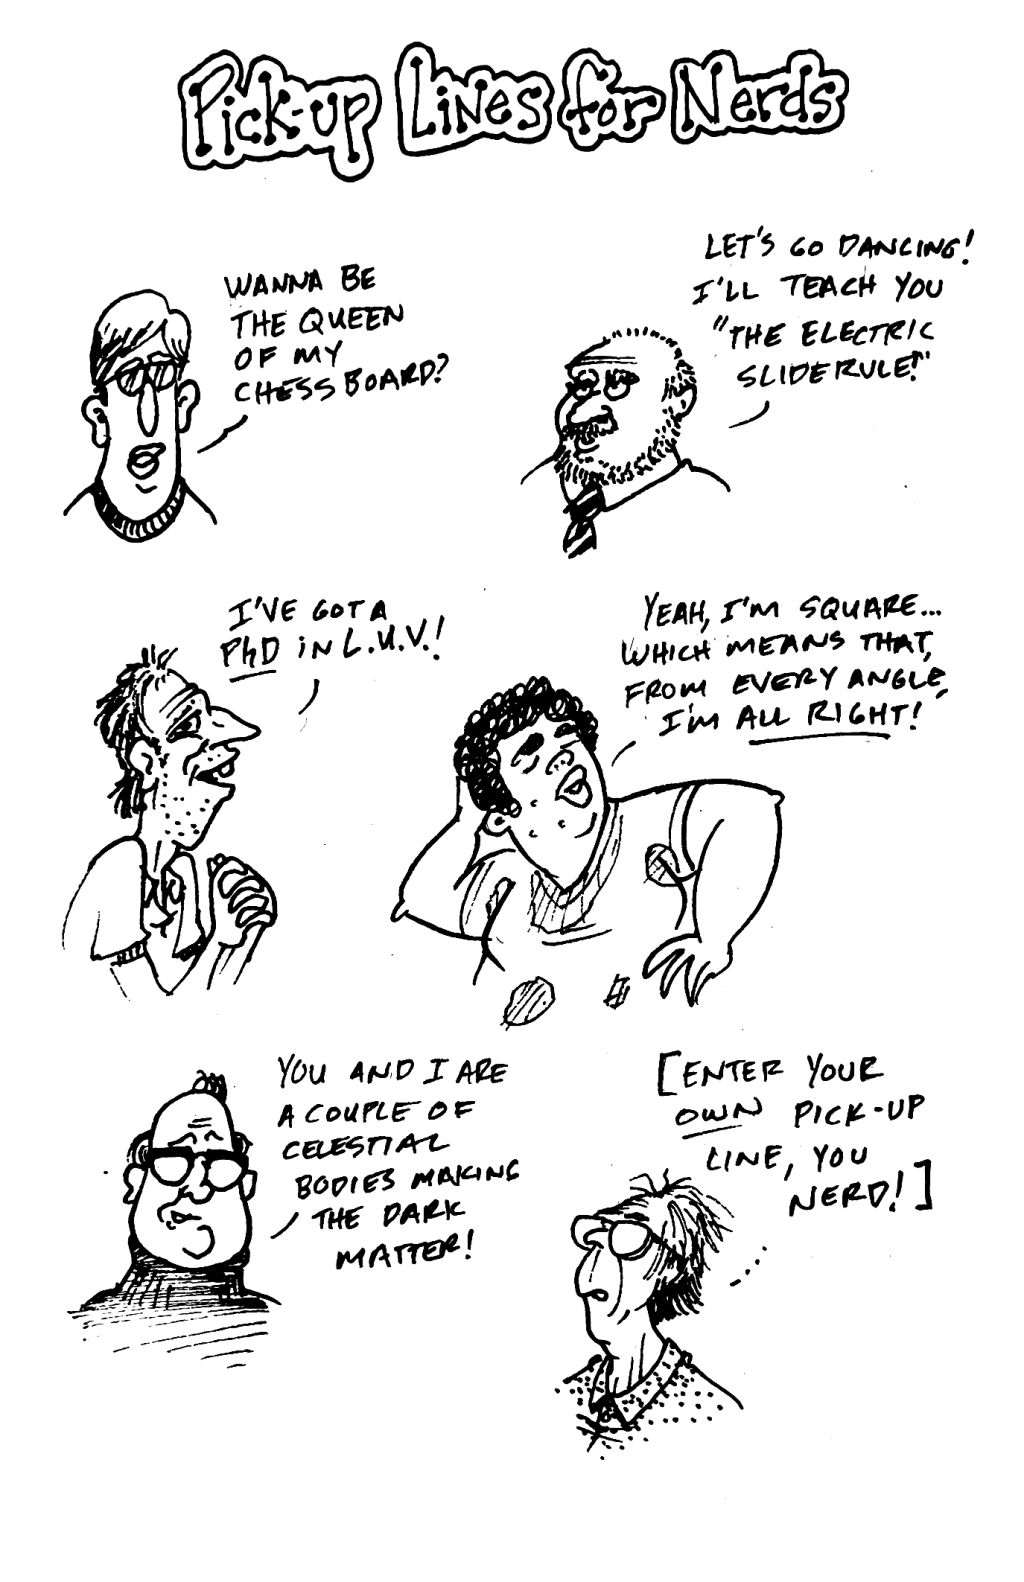 Pick-up Lines for Nerds
WANNA BE
THE QUEEN
OF MY
CHESS BOARD?
LET'S GO DANCING!
I'LL TEACH YOU
"THE ELECTRIC
SLIDERULE!"
I'VE GOT A
PhD iN L.U.V.!
YEAH, I'M SQUARE...
WHICH MEANS THAT,
FROM EVERY ANGLE,
I'M ALL RIGHT!
YOU AND I ARE
A COUPLE OF
CELESTIAL
BODIES MAKING
THE DARK
MATTER!
[ENTER YOUR
OWN PICK-UP
LINE, YOU
NERD!]